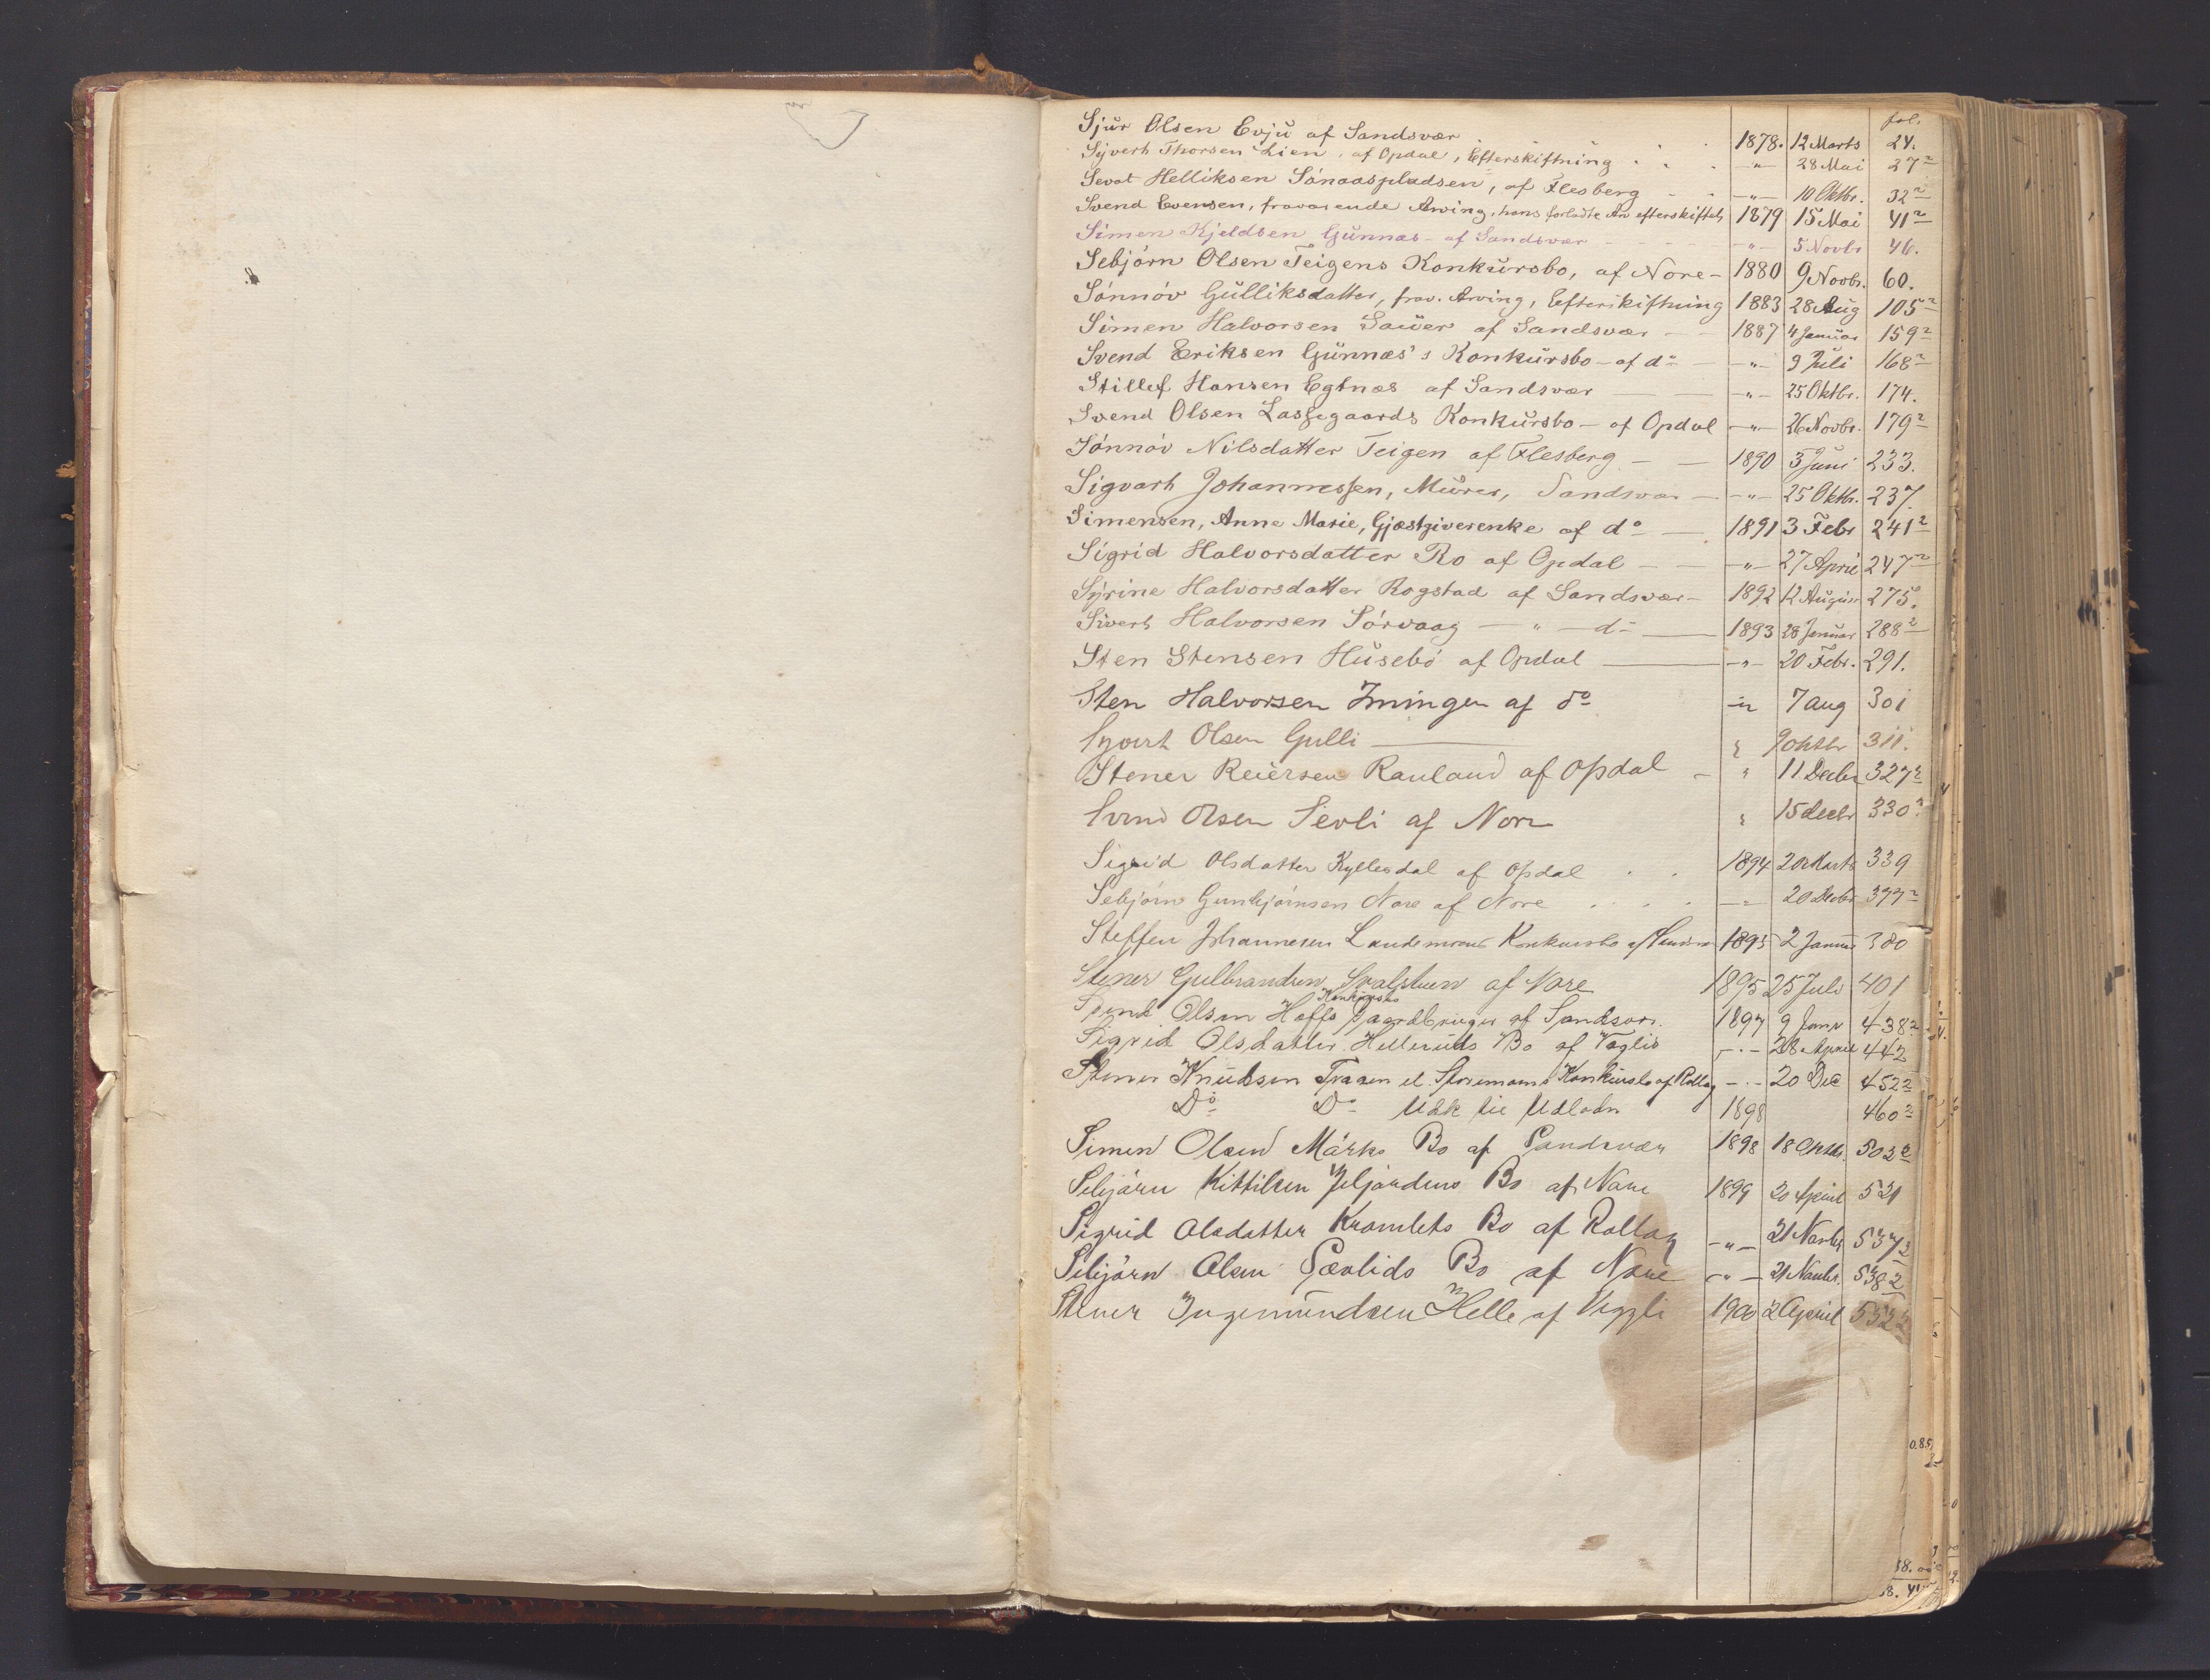 fol.
Sjur Olsen Evju af Sandsvær 1878. 12 Marts 24.
Syvert Thorsen Lien, af Opdal, Efterskiftning -"- 28 Mai 27 2
Sevat Helliksen Sönaaspladsen, af Flesberg -"- 10 Oktbr. 32 2
Svend Evensen, fraværende Arving, hans forladte Arv efterskiftet 1879 15 Mai 41 2
Simen Kjeldsen Gunnæs - af Sandsvær -"- 5 Novbr 46.
Sebjörn Olsen Teigens Konkursbo, af Nore - 1880 9 Novbr. 60.
Sönnöv Gulliksdatter, frav. Arving, Efterskiftning 1883 28 Aug 105 2
Simen Halvorsen Sauer af Sandsvær 1887 4 Januar 159 2
Svend Eriksen Gunnæs's Konkursbo - af do -"- 9 Juli 168 2
Stillef Hansen Egtnæs af Sandsvær -"- 25 Oktbr. 174.
Svend Olsen Lassegaards Konkursbo - af Opdal -"- 26 Novbr. 179 2
Sönnöv Nilsdatter Teigen af Flesberg 1890 3 Juni 233.
Sigvart Johannessen, Murer, Sandsvær -"- 25 Oktbr. 237.
Simensen, Anne Marie, Gjæstgiverenke af do 1891 3 Febr 241 2
Sigrid Halvorsdatter Ro af Opdal -"- 27 April 247 2
Syrine Halvorsdatter Rogstad af Sandsvær - 1892 12 August 275.
Sivert Halvorsen Sörvaag - " - do 1893 28 Januar 288 2
Sten Stensen Husebö af Opdal -"- 20 Febr. 291.
Sten Halvorsen Imingen af do -"- 7 aug 301
Syvert Olsen Gulli " 9 oktbr 311.
Stener Reiersen Rauland af Opdal " 11 Decbr 327 2
Svend Olsen Sevli af Nore " 15 decbr 330 2
Sigrid Olsdatter Kyllesdal af Opdal 1894 20 Marts 339
Sebjörn Gunbjörnsen Nore af Nore -"- 20 Decbr 377 2
Steffen Johannesen Landemoens Konkursbo af Sandsvær 1895 2 Januar 380
Stener Gulbrandsen af Nore 1895 25 Juli 401
Konkursbo
Svend Olsen Hoffs Gaardbruger af Sandsvær. 1897 9 Janr 438 2
Sigrid Olsdatter Helleruds Bo af Væglid -"- 28 April 442
Stener Knudsen Traaen el. Storemoens Konkursbo af Rollag -"- 20 Dec 452 2
Do Do Udk til Udlodn 1898 460 2
Simen Olsen Mörks Bo af Sandsvær 1898 18 Oktbr. 503 2
Sebjörn Kittilsen Bo af Nore 1899 20 April 521
Sigrid Olsdatter Kromlets Bo af Rollag -"- 21 Novbr 537 2
Sebjörn Olsen Sævlids Bo af Nore -"- 21 Novbr. 538 2
Stener Ingemundsen Helle af Veggli 1900 2 April